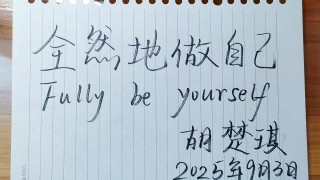 全然地做自己
Fully be yourself
胡楚琪
2025年9月3日